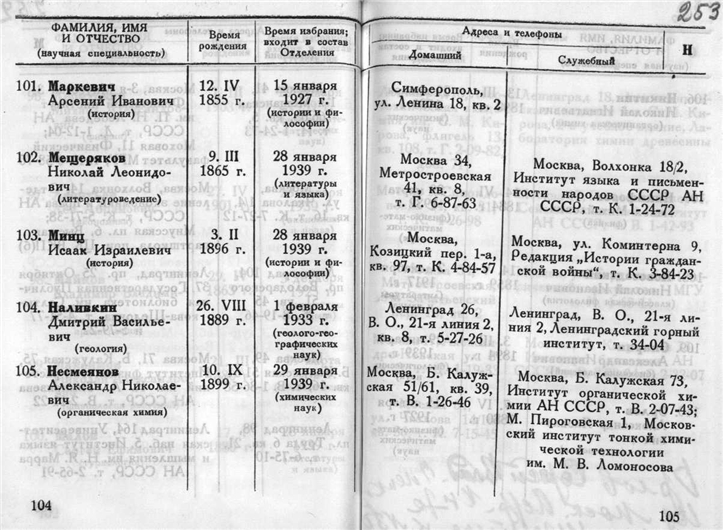 253
ФАМИЛИЯ, ИМЯ
И ОТЧЕСТВО
(научная специальность)
Время
рождения
Время избрания;
входит в состав
Отделения
101. Маркевич
Арсений Иванович
(история)
12. IV
1855 г.
15 января
1927 г.
(истории и фи-
лософии)
102. Мещеряков
Николай Леонидо-
вич
(литературоведение)
9. III
1865 г.
28 января
1939 г.
(литературы
и языка)
103. Минц
Исаак Израилевич
(история)
3. II
1896 г.
28 января
1939 г.
(истории и фи-
лософии)
104. Наливкин
Дмитрий Василье-
вич
(геология)
26. VIII
1889 г.
1 февраля
1933 г.
(геолого-гео-
графических
наук)
105. Несмеянов
Александр Николае-
вич
(органическая химия)
10. IX
1899 г.
29 января
1939 г.
(химических
наук)
104
Адреса и телефоны
Домашний
Служебный
Н
Симферополь,
ул. Ленина 18, кв. 2
Москва 34,
Метростроевская
41, кв. 8,
т. Г. 6-87-63
Москва, Волхонка 18/2,
Институт языка и письмен-
ности народов СССР АН
СССР, т. К. 1-24-72
Москва,
Козицкий пер. 1-а,
кв. 97, т. К. 4-84-57
Москва, ул. Коминтерна 9,
Редакция „Истории граждан-
ской войны“, т. К. 3-84-23
Ленинград 26,
В. О., 21-я линия 2,
кв. 8, т. 5-27-26
Ленинград, В. О., 21-я ли-
ния 2, Ленинградский горный
институт, т. 34-04
Москва, Б. Калуж-
ская 51/61, кв. 39,
т. В. 1-26-46
Москва, Б. Калужская 73,
Институт органической хи-
мии АН СССР, т. В. 2-07-43;
М. Пироговская 1, Москов-
ский институт тонкой хими-
ческой технологии
им. М. В. Ломоносова
105